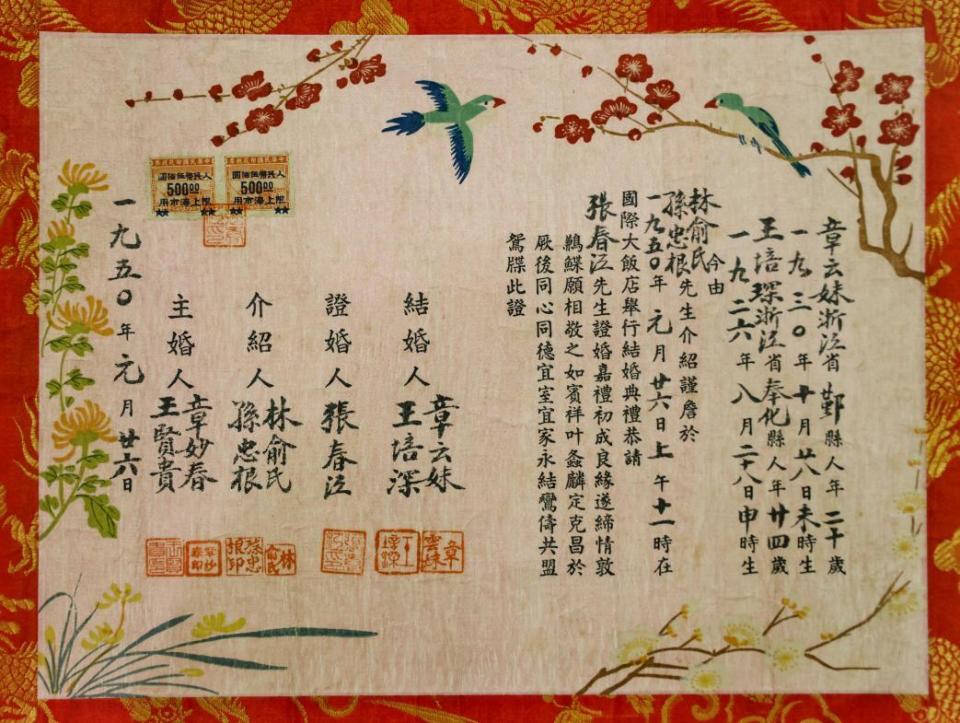 章云妹浙江省鄞縣人年二十歲
一九三〇年十月廿八日未時生
王培琛浙江省奉化縣人年廿四歲
一九二六年八月二十八日申時生
今由
林俞氏
孫忠根先生介紹謹詹於
一九五〇年元月廿六日上午十一時在
國際大飯店舉行結婚典禮恭請
張春江先生證婚嘉禮初成良緣遂締情敦
鶼鰈願相敬之如賓祥叶螽麟定克昌於
厥後同心同德宜室宜家永結鸞儔共盟
鴛牒此證
結婚人 章云妹
王培深
證婚人 張春江
介紹人 林俞氏
孫忠根
主婚人 章妙春
王賢貴
一九五〇年元月廿六日
人民幣伍佰圓
500.00
限上海市用
人民幣伍佰圓
500.00
限上海市用